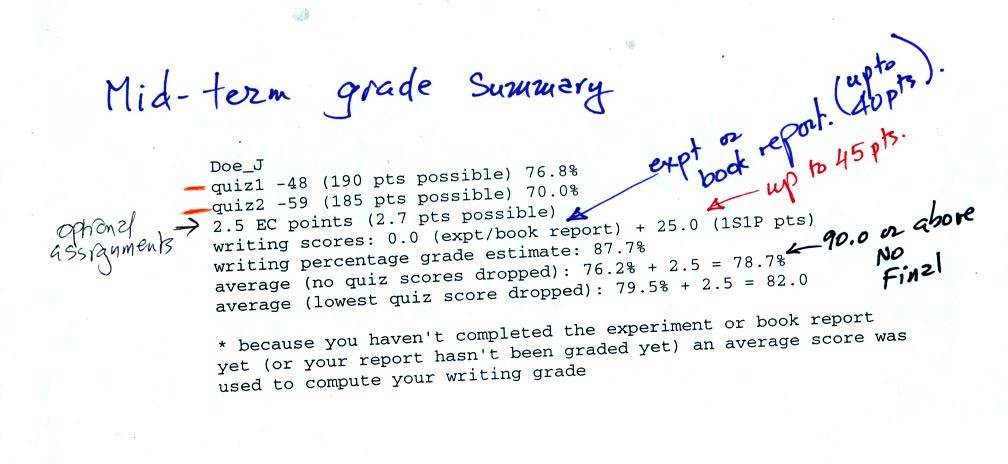 Mid-term grade Summary
expt or
book report. (up to
40pts).
up to 45 pts.
Doe_J
quiz1 -48 (190 pts possible) 76.8%
quiz2 -59 (185 pts possible) 70.0%
optional
assignments
2.5 EC points (2.7 pts possible)
writing scores: 0.0 (expt/book report) + 25.0 (1S1P pts)
writing percentage grade estimate: 87.7%
average (no quiz scores dropped): 76.2% + 2.5 = 78.7%
average (lowest quiz score dropped): 79.5% + 2.5 = 82.0
90.0 or above
No
Final
* because you haven't completed the experiment or book report
yet (or your report hasn't been graded yet) an average score was
used to compute your writing grade